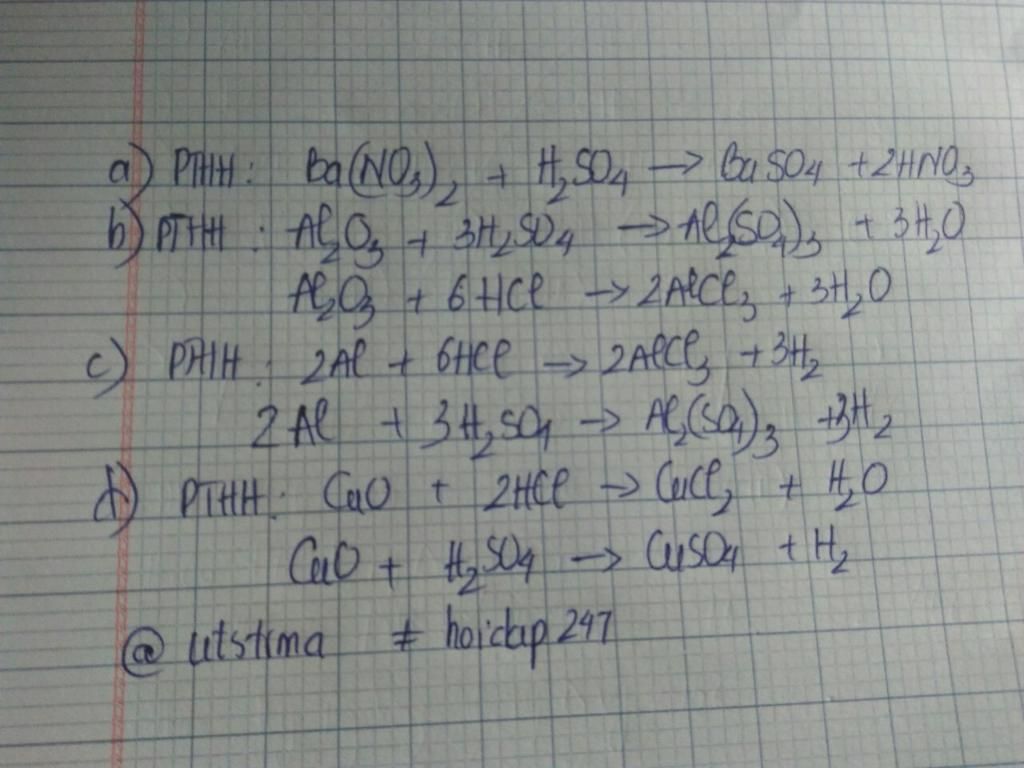 a) PTHH: Ba(NO₃)₂ + H₂SO₄ → BaSO₄ + 2HNO₃
b) PTHH: Al₂O₃ + 3H₂SO₄ → Al₂(SO₄)₃ + 3H₂O
Al₂O₃ + 6HCl → 2AlCl₃ + 3H₂O
c) PTHH: 2Al + 6HCl → 2AlCl₃ + 3H₂
2Al + 3H₂SO₄ → Al₂(SO₄)₃ + 3H₂
d) PTHH: CuO + 2HCl → CuCl₂ + H₂O
CuO + H₂SO₄ → CuSO₄ + H₂
@ # hoidap247